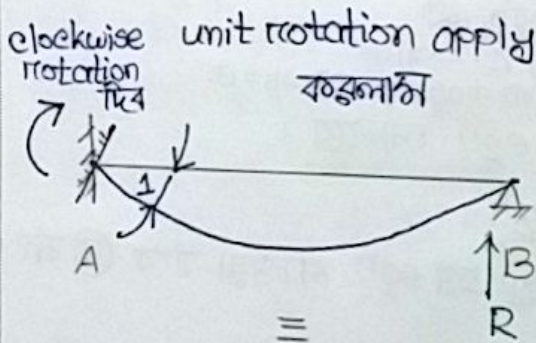 clockwise unit rotation apply
rotation করলাম
দিব
1
A
B
R
=